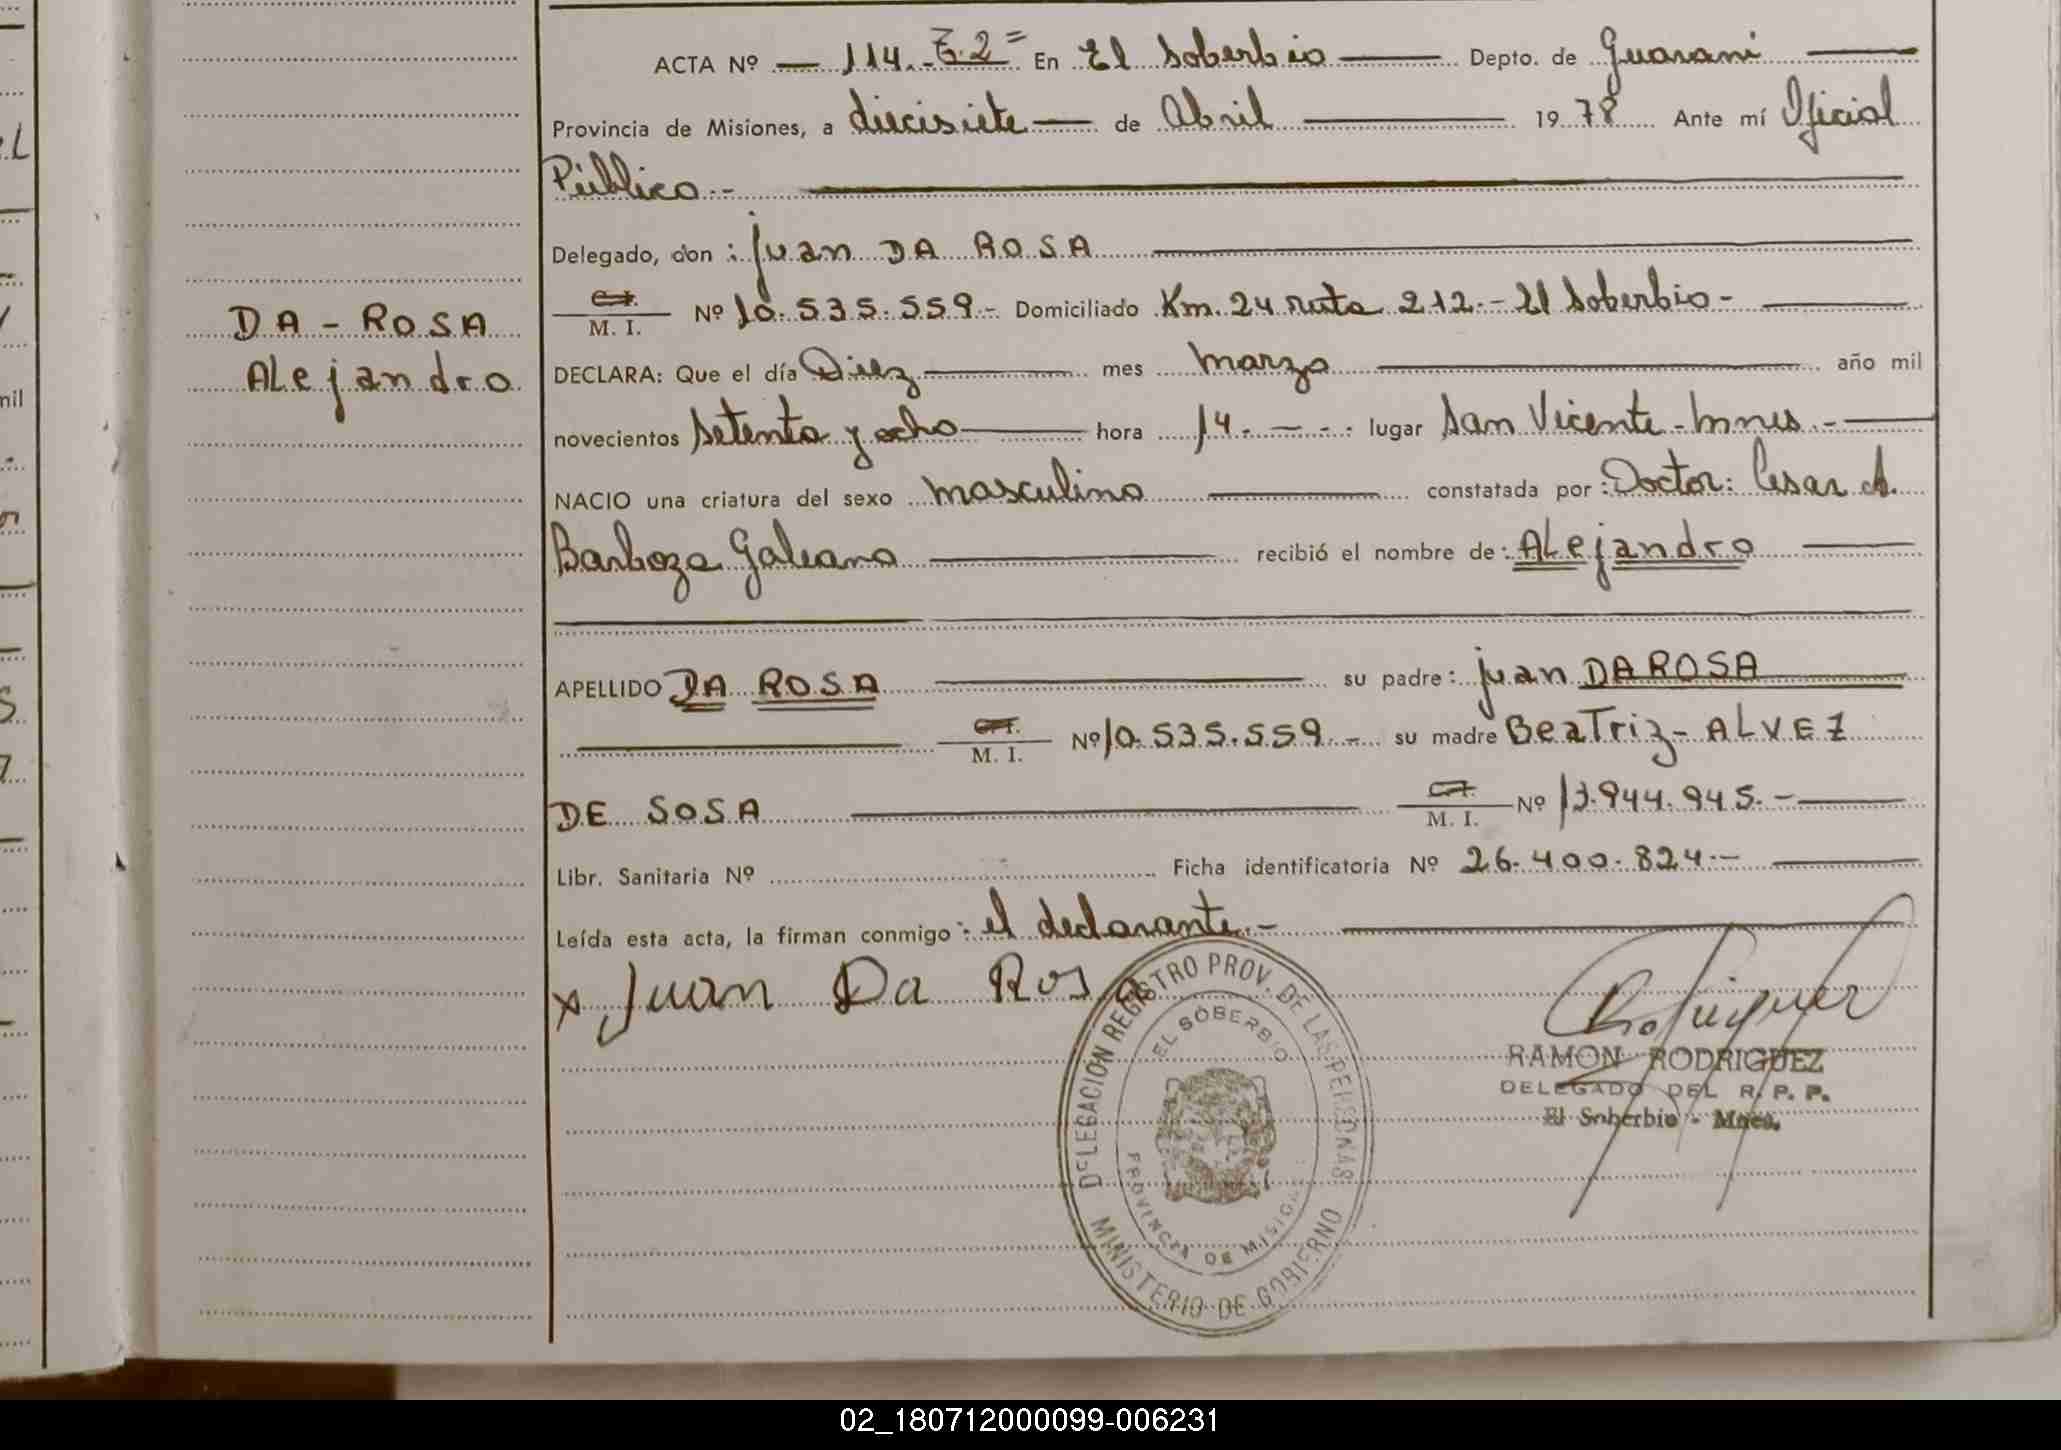 ACTA Nº 114.- T. 2= En El Soberbio Depto. de Guaraní
Provincia de Misiones, a diecisiete de Abril 1978 Ante mí Oficial
Público.-
Delegado, don: Juan DA ROSA
C.I.
M. I. Nº 10.535.559- Domiciliado Km. 24 ruta 212.- El Soberbio-
DA-ROSA
Alejandro
DECLARA: Que el día Diez mes marzo año mil
novecientos setenta y ocho hora 14.- lugar San Vicente-Mnes.-
NACIO una criatura del sexo masculino constatada por: Doctor: Cesar A.
Barboza Galeano recibió el nombre de: Alejandro
APELLIDO DA ROSA su padre: Juan DA ROSA
C.I.
M. I. Nº 10.535.559.- su madre Beatriz-ALVEZ
DE SOSA C.I.
M. I. Nº 13.944.945.-
Libr. Sanitaria Nº Ficha identificatoria Nº 26.400.824.-
Leída esta acta, la firman conmigo: el declarante.-
x Juan Da Rosa
DELEGACIÓN REGISTRO PROV. DE LAS PERSONAS
EL SOBERBIO
PROVINCIA DE MISIONES
MINISTERIO DE GOBIERNO
RAMON RODRIGUEZ
DELEGADO DEL R. P. P.
El Soberbio - Mnes.
02_180712000099-006231